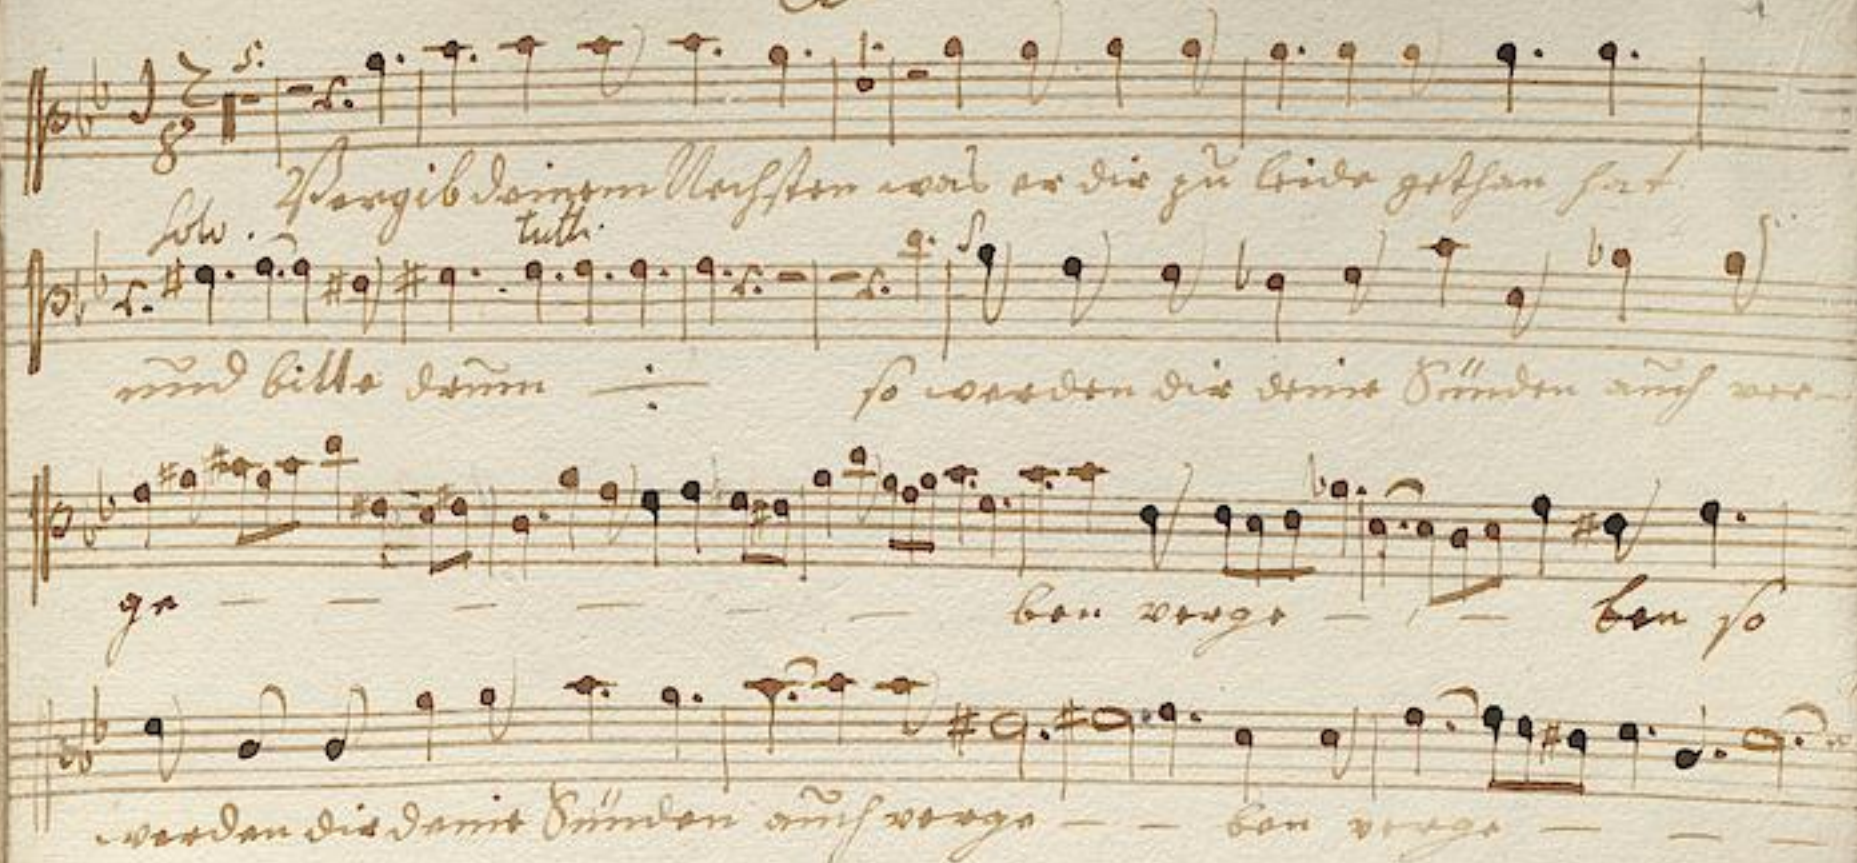 Vergib deinem Nechsten was er dir zu leide gethan hat
Solo. tutti.
und bitte drum
so werden dir deine Sünden auch ver-
ge - - - - - - ben verge - - - ben so
werden dir deine Sünden auch verge - - ben verge - - -